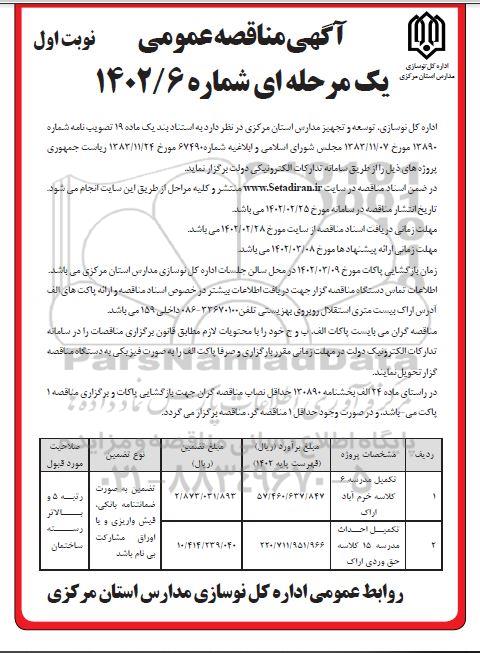 آگهی مناقصه عمومی
نوبت اول
یک مرحله ای شماره ۱۴۰۲/۶
اداره کل نوسازی
مدارس استان مرکزی
اداره کل نوسازی، توسعه و تجهیز مدارس استان مرکزی در نظر دارد به استناد بند یک ماده ۱۹ تصویب نامه شماره
۱۳۸۹۰ مورخ ۱۳۸۳/۱۱/۰۷ مجلس شورای اسلامی و ابلاغیه شماره ۶۷۴۹۰ مورخ ۱۳۸۳/۱۱/۲۴ ریاست جمهوری
پروژه های ذیل را از طریق سامانه تدارکات الکترونیکی دولت برگزار نماید.
در ضمن اسناد مناقصه در سایت www.Setadiran.ir منتشر و کلیه مراحل از طریق این سایت انجام می شود.
تاریخ انتشار مناقصه در سامانه مورخ ۱۴۰۲/۰۲/۲۵ می باشد.
مهلت زمانی دریافت اسناد مناقصه از سایت مورخ ۱۴۰۲/۰۲/۲۸ می باشد.
مهلت زمانی ارائه پیشنهاد ها مورخ ۱۴۰۲/۰۳/۰۸ می باشد.
زمان بازگشایی پاکات مورخ ۱۴۰۲/۰۳/۰۹ در محل سالن جلسات اداره کل نوسازی مدارس استان مرکزی می باشد.
اطلاعات تماس دستگاه مناقصه گزار جهت دریافت اطلاعات بیشتر در خصوص اسناد مناقصه و ارائه پاکت های الف
آدرس اراک بیست متری استقلال روبروی بهزیستی تلفن ۳۳۶۷۰۱۰۰-۰۸۶ داخلی ۱۵۹ می باشد.
مناقصه گران می بایست پاکات الف، ب و ج خود را با محتویات لازم مطابق قانون برگزاری مناقصات را در سامانه
تدارکات الکترونیک دولت در مهلت زمانی مقرر بارگزاری و صرفا پاکت الف را به صورت فیزیکی به دستگاه مناقصه
گزار تحویل نمایند.
در راستای ماده ۲۴ الف بخشنامه ۱۳۰۸۹۰ حداقل نصاب مناقصه گران جهت بازگشایی پاکات و برگزاری مناقصه ۱
پاکت می-باشد. و در صورت وجود حداقل ۱ مناقصه گر، مناقصه برگزار می گردد.
ردیف مشخصات پروژه مبلغ برآورد (ریال) (فهرست پایه ۱۴۰۲) مبلغ تضمین (ریال) نوع تضمین صلاحیت مورد قبول
۱ تکمیل مدرسه ۶ کلاسه خرم آباد اراک ۵۷/۴۶۰/۶۳۷/۸۴۷ ۲/۸۷۳/۰۳۱/۸۹۳ تضمین به صورت ضمانتنامه بانکی، فیش واریزی و یا اوراق مشارکت بی نام باشد رتبه ۵ و بالاتر رسته ساختمان
۲ تکمیل احداث مدرسه ۱۵ کلاسه حق وردی اراک ۲۲۰/۷۱۱/۹۵۱/۹۶۶ ۱۰/۴۱۴/۲۳۹/۰۴۰
روابط عمومی اداره کل نوسازی مدارس استان مرکزی
ParsNamadData
پایگاه اطلاع رسانی مناقصه و مزایده
۰۲۱-۸۸۳۴۹۶۷۰-۵